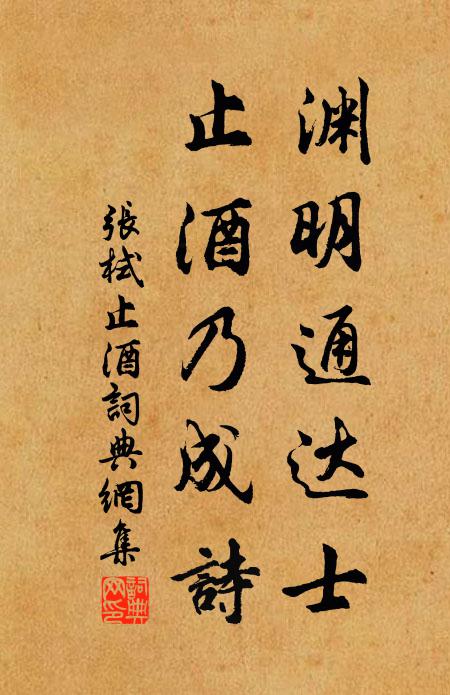 渊明通达士
止酒乃成詩
張栻止酒詞典網集
詞典網印